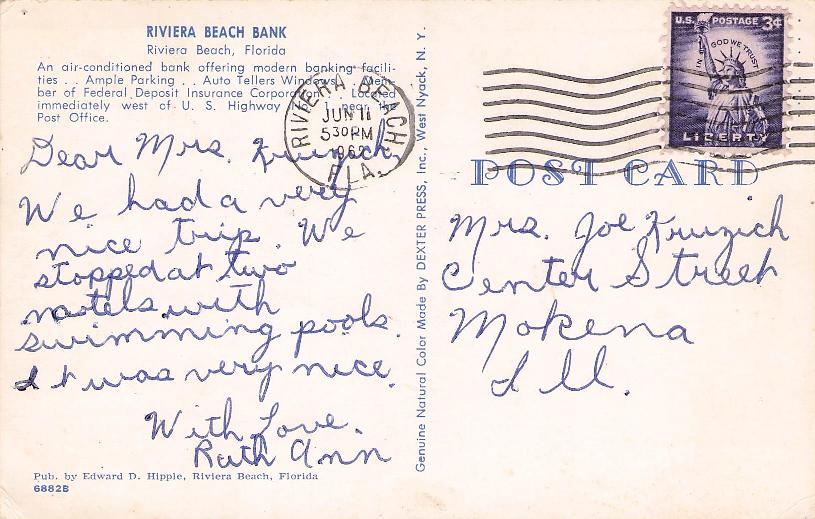 RIVIERA BEACH BANK
Riviera Beach, Florida
An air-conditioned bank offering modern banking facili-
ties . . Ample Parking . . Auto Tellers Windows . . Mem-
ber of Federal Deposit Insurance Corporation . Located
immediately west of U. S. Highway No. 1 near the
Post Office.
Dear Mrs. Kruzich,
We had a very
nice trip. We
stopped at two
motels with
swimming pools.
It was very nice.
With Love,
Ruth Ann
Pub. by Edward D. Hipple, Riviera Beach, Florida
6882B
Genuine Natural Color Made By DEXTER PRESS, Inc., West Nyack, N. Y.
RIVIERA BEACH
JUN 11
530PM
FLA.
U.S. POSTAGE 3¢
IN GOD WE TRUST
LIBERTY
POST CARD
Mrs. Joe Kruzich
Center Street
Mokena
Ill.